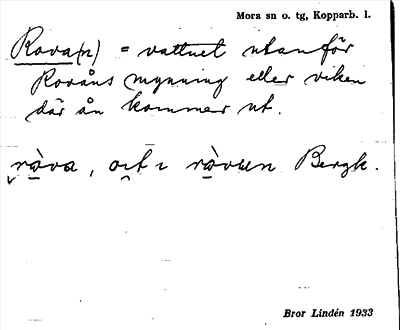 Mora sn o. tg, Kopparb. l.
Rova(n) = vattnet utanför
Rovåns mynning eller viken
där ån kommer ut.
ràva, i ràvun Bergk.
Bror Lindén 1933